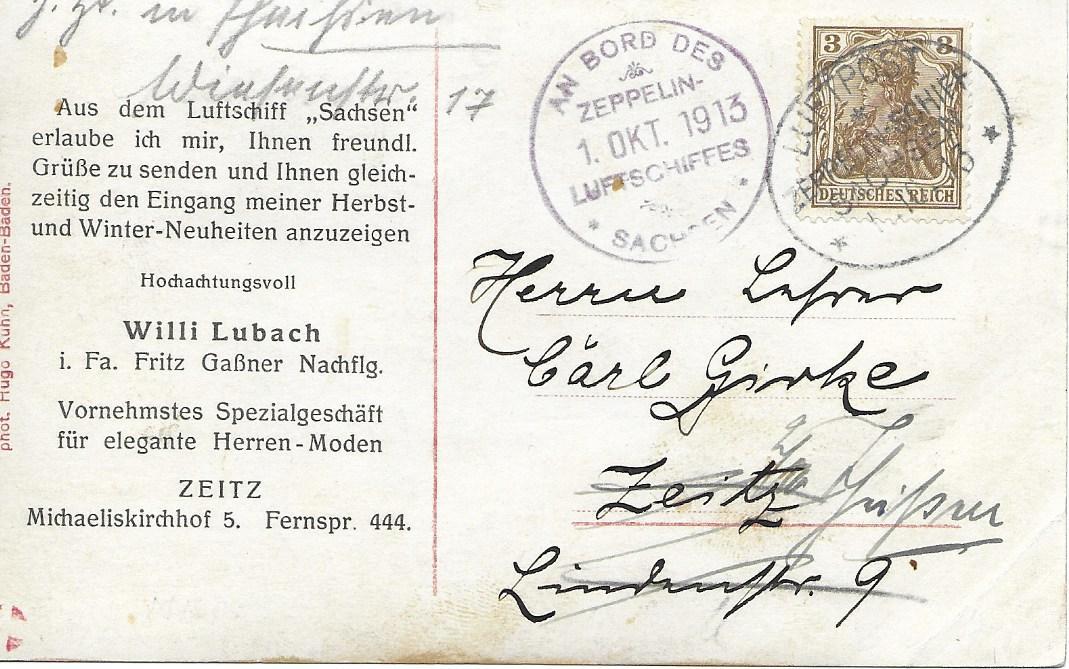 z. Zt. in
17
Aus dem Luftschiff „Sachsen“
erlaube ich mir, Ihnen freundl.
Grüße zu senden und Ihnen gleich-
zeitig den Eingang meiner Herbst-
und Winter-Neuheiten anzuzeigen
Hochachtungsvoll
Willi Lubach
i. Fa. Fritz Gaßner Nachflg.
Vornehmstes Spezialgeschäft
für elegante Herren-Moden
ZEITZ
Michaeliskirchhof 5. Fernspr. 444.
phot. Hugo Kuhn, Baden-Baden.
AN BORD DES
ZEPPELIN-
1. OKT. 1913
LUFTSCHIFFES
* SACHSEN *
3 3
DEUTSCHES REICH
LUFTPOST
ZEPPELIN-SCHIFF
SACHSEN
Herrn Lehrer
Carl Girke
Zeitz
Lindenstr. 9